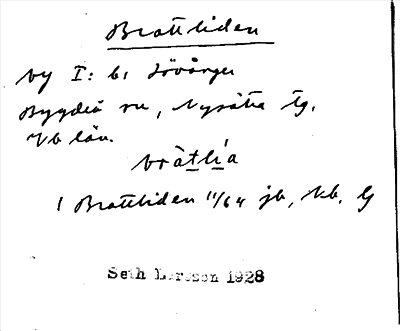 Brattliden
by I: b. Lövånger
Bygdeå sn, Nysätra tg.
Vb län.
bràtlía
1 Brattliden 11/64 jb, kb,
Seth Larsson 1928